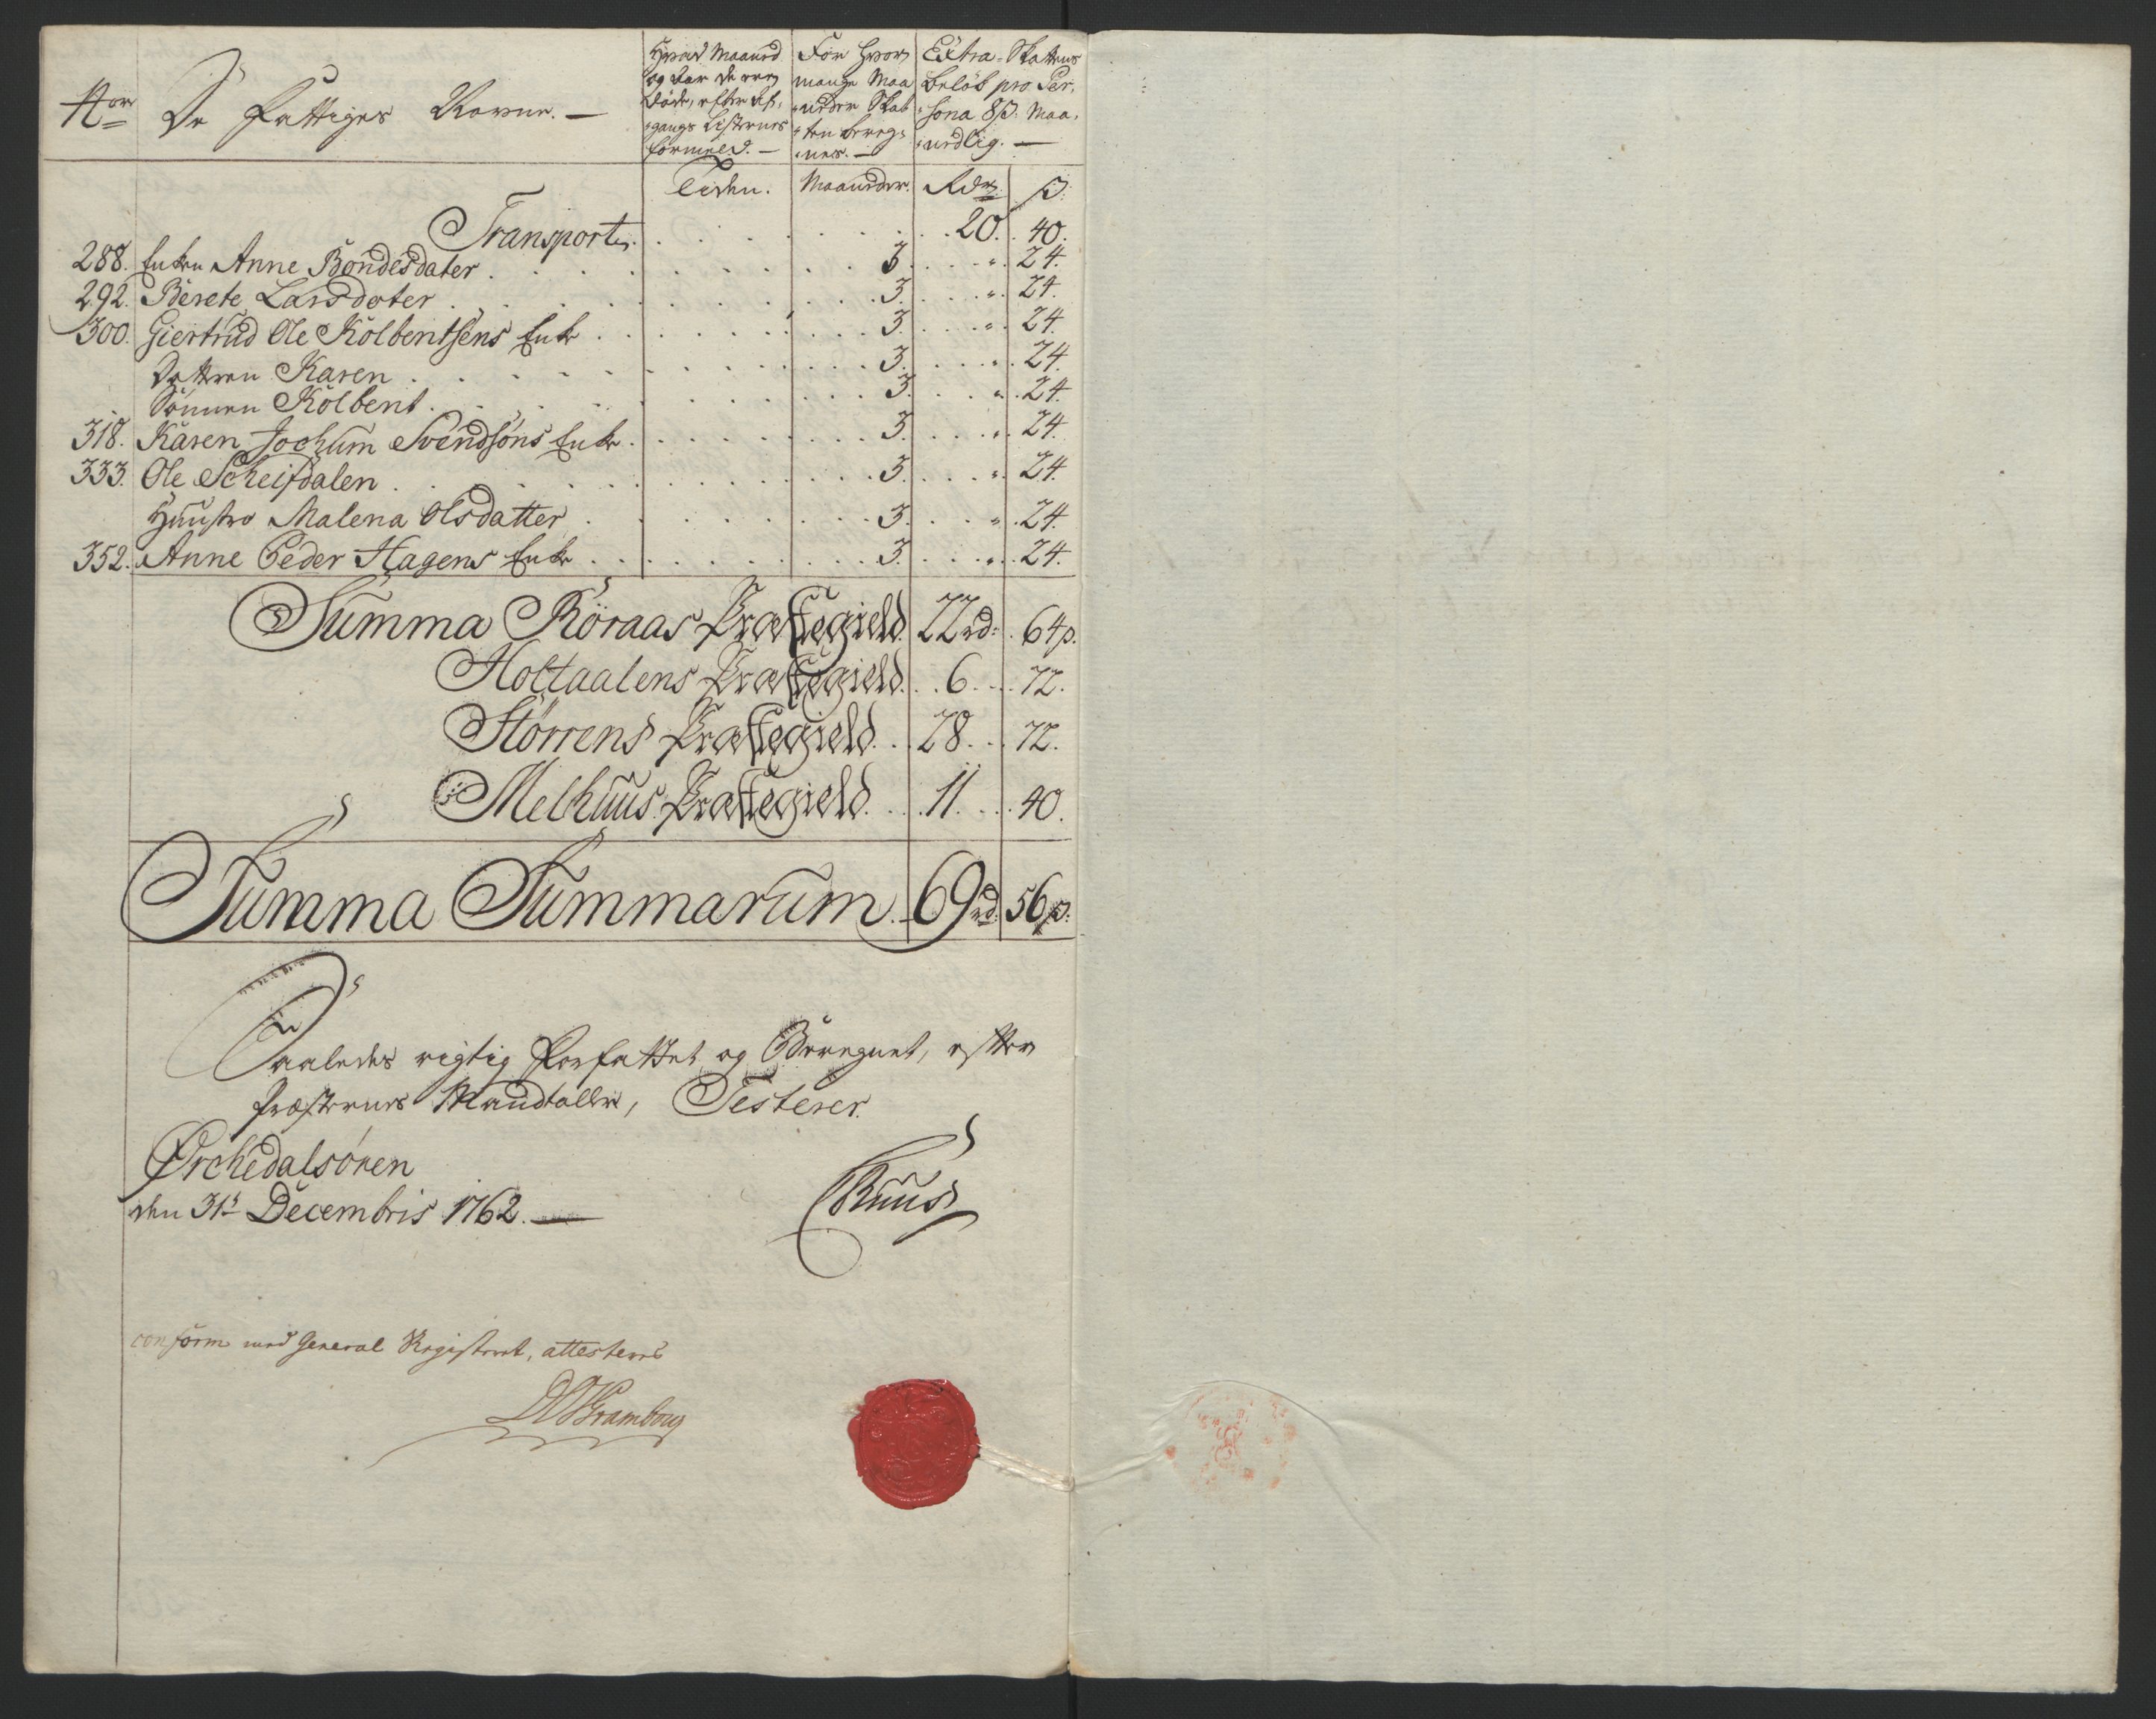 Nor De Fattiges Navne. —
Hvad Maaned
og Aar de ere
døde, efter Af-
gangs Listernes
formeld. —
For hvor
mange Maa
neder Skat
ten bereg-
nes. —
Extra-Skattens
beløb pro Per-
sona 8 ß. Maa-
nedlig. —
Tiden. Maaneder. Rdr. ß.
Transport. 20. 40.
288. Enken Anne Bondesdater 3. " 24.
292. Berete Larsdoter 3. " 24.
300. Giertrud Ole Kolbentsens Enke 3. " 24.
Datteren Karen 3. " 24.
Sønnen Kolbent 3. " 24.
318. Karen Jochum Svendsøns Enke 3. " 24.
333. Ole Scheifdalen 3. " 24.
Huustro Malena Olsdatter 3. " 24.
352. Anne Peder Hagens Enke 3. " 24.
Summa Röraas Præstegield 22 rd: 64 ß.
Holtaalens Præstegield. 6. 72.
Störrens Præstegield. 28. 72.
Melhuus Præstegield. 11. 40.
Summa Summarum. 69 rd. 56 ß.
Saaledes rigtig Forfattet og Beregnet, efter
Præsternes Mandtaller, Testerer.
Örchedalsören
den 31t Decembris 1762. —
Ruus
conform med General Registeret, attesteres